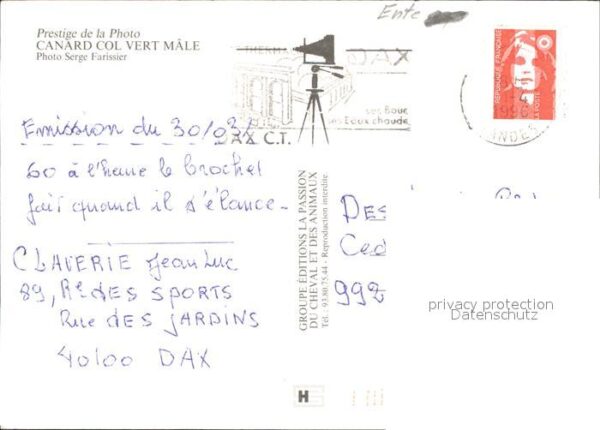 Prestige de la Photo
CANARD COL VERT MÂLE
Photo Serge Farissier
Ente
THERM DAX
ses Boue
ses Eaux chaude
DAX C.T.
REPUBLIQUE FRANÇAISE
LA POSTE
1996
LANDES
Emission du 30/03/
60 à l'heure le brochet
fait quand il s'élance_
CLAVERIE Jean Luc
89, Rce DES SPORTS
Rue DES JARDINS
40100 DAX
GROUPE ÉDITIONS LA PASSION
DU CHEVAL ET DES ANIMAUX
Tél. : 93.80.75.44 - Reproduction interdite
Des
Ced
992
privacy protection
Datenschutz
H